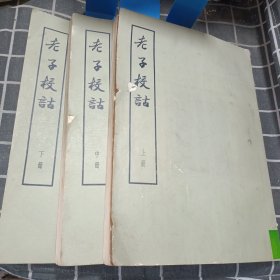 老子校詁
上册
老子校詁
中册
老子校詁
下册